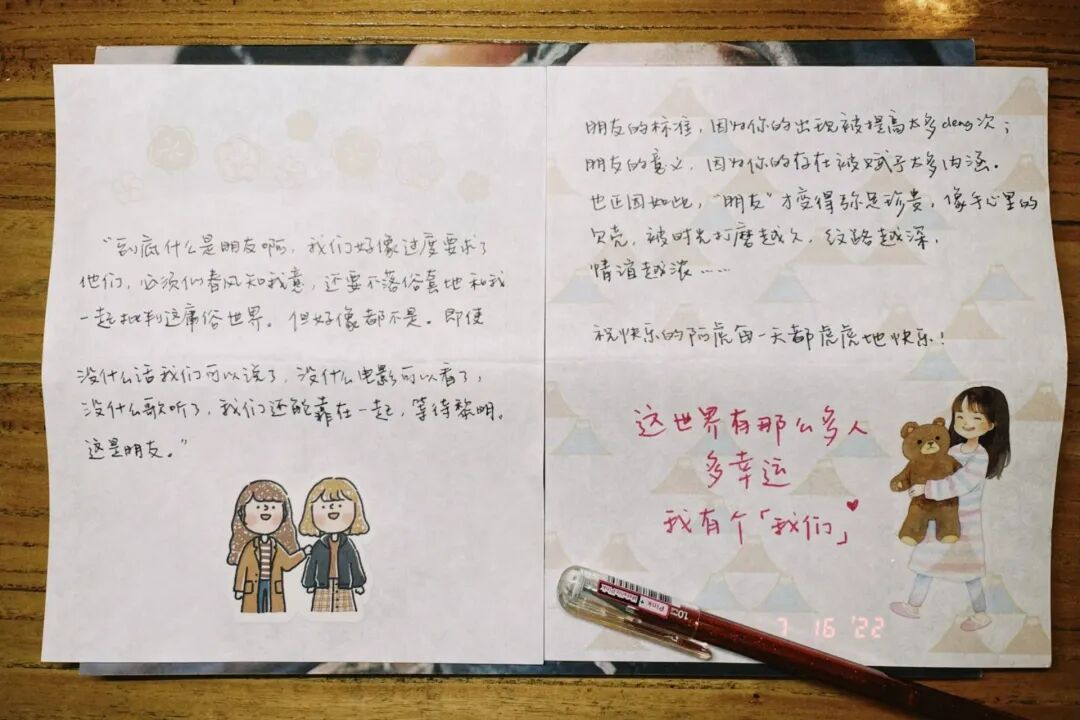 “到底什么是朋友啊，我们好像过度要求了
他们，必须似春风知我意，还要不落俗套地和我
一起批判这庸俗世界。但好像都不是。即使
没什么话我们可以说了，没什么电影可以看了，
没什么歌听了，我们还能靠在一起，等待黎明。
这是朋友。”
朋友的标准，因为你的出现被提高太多deng次；
朋友的意义，因为你的存在被赋予太多内涵。
也正因如此，“朋友”才变得弥足珍贵，像手心里的
贝壳，被时光打磨越久，纹路越深，
情谊越浓……
祝快乐的阿虎每一天都虎虎地快乐！
这世界有那么多人
多幸运
我有个「我们」
Pink
1.0
7 16 '22